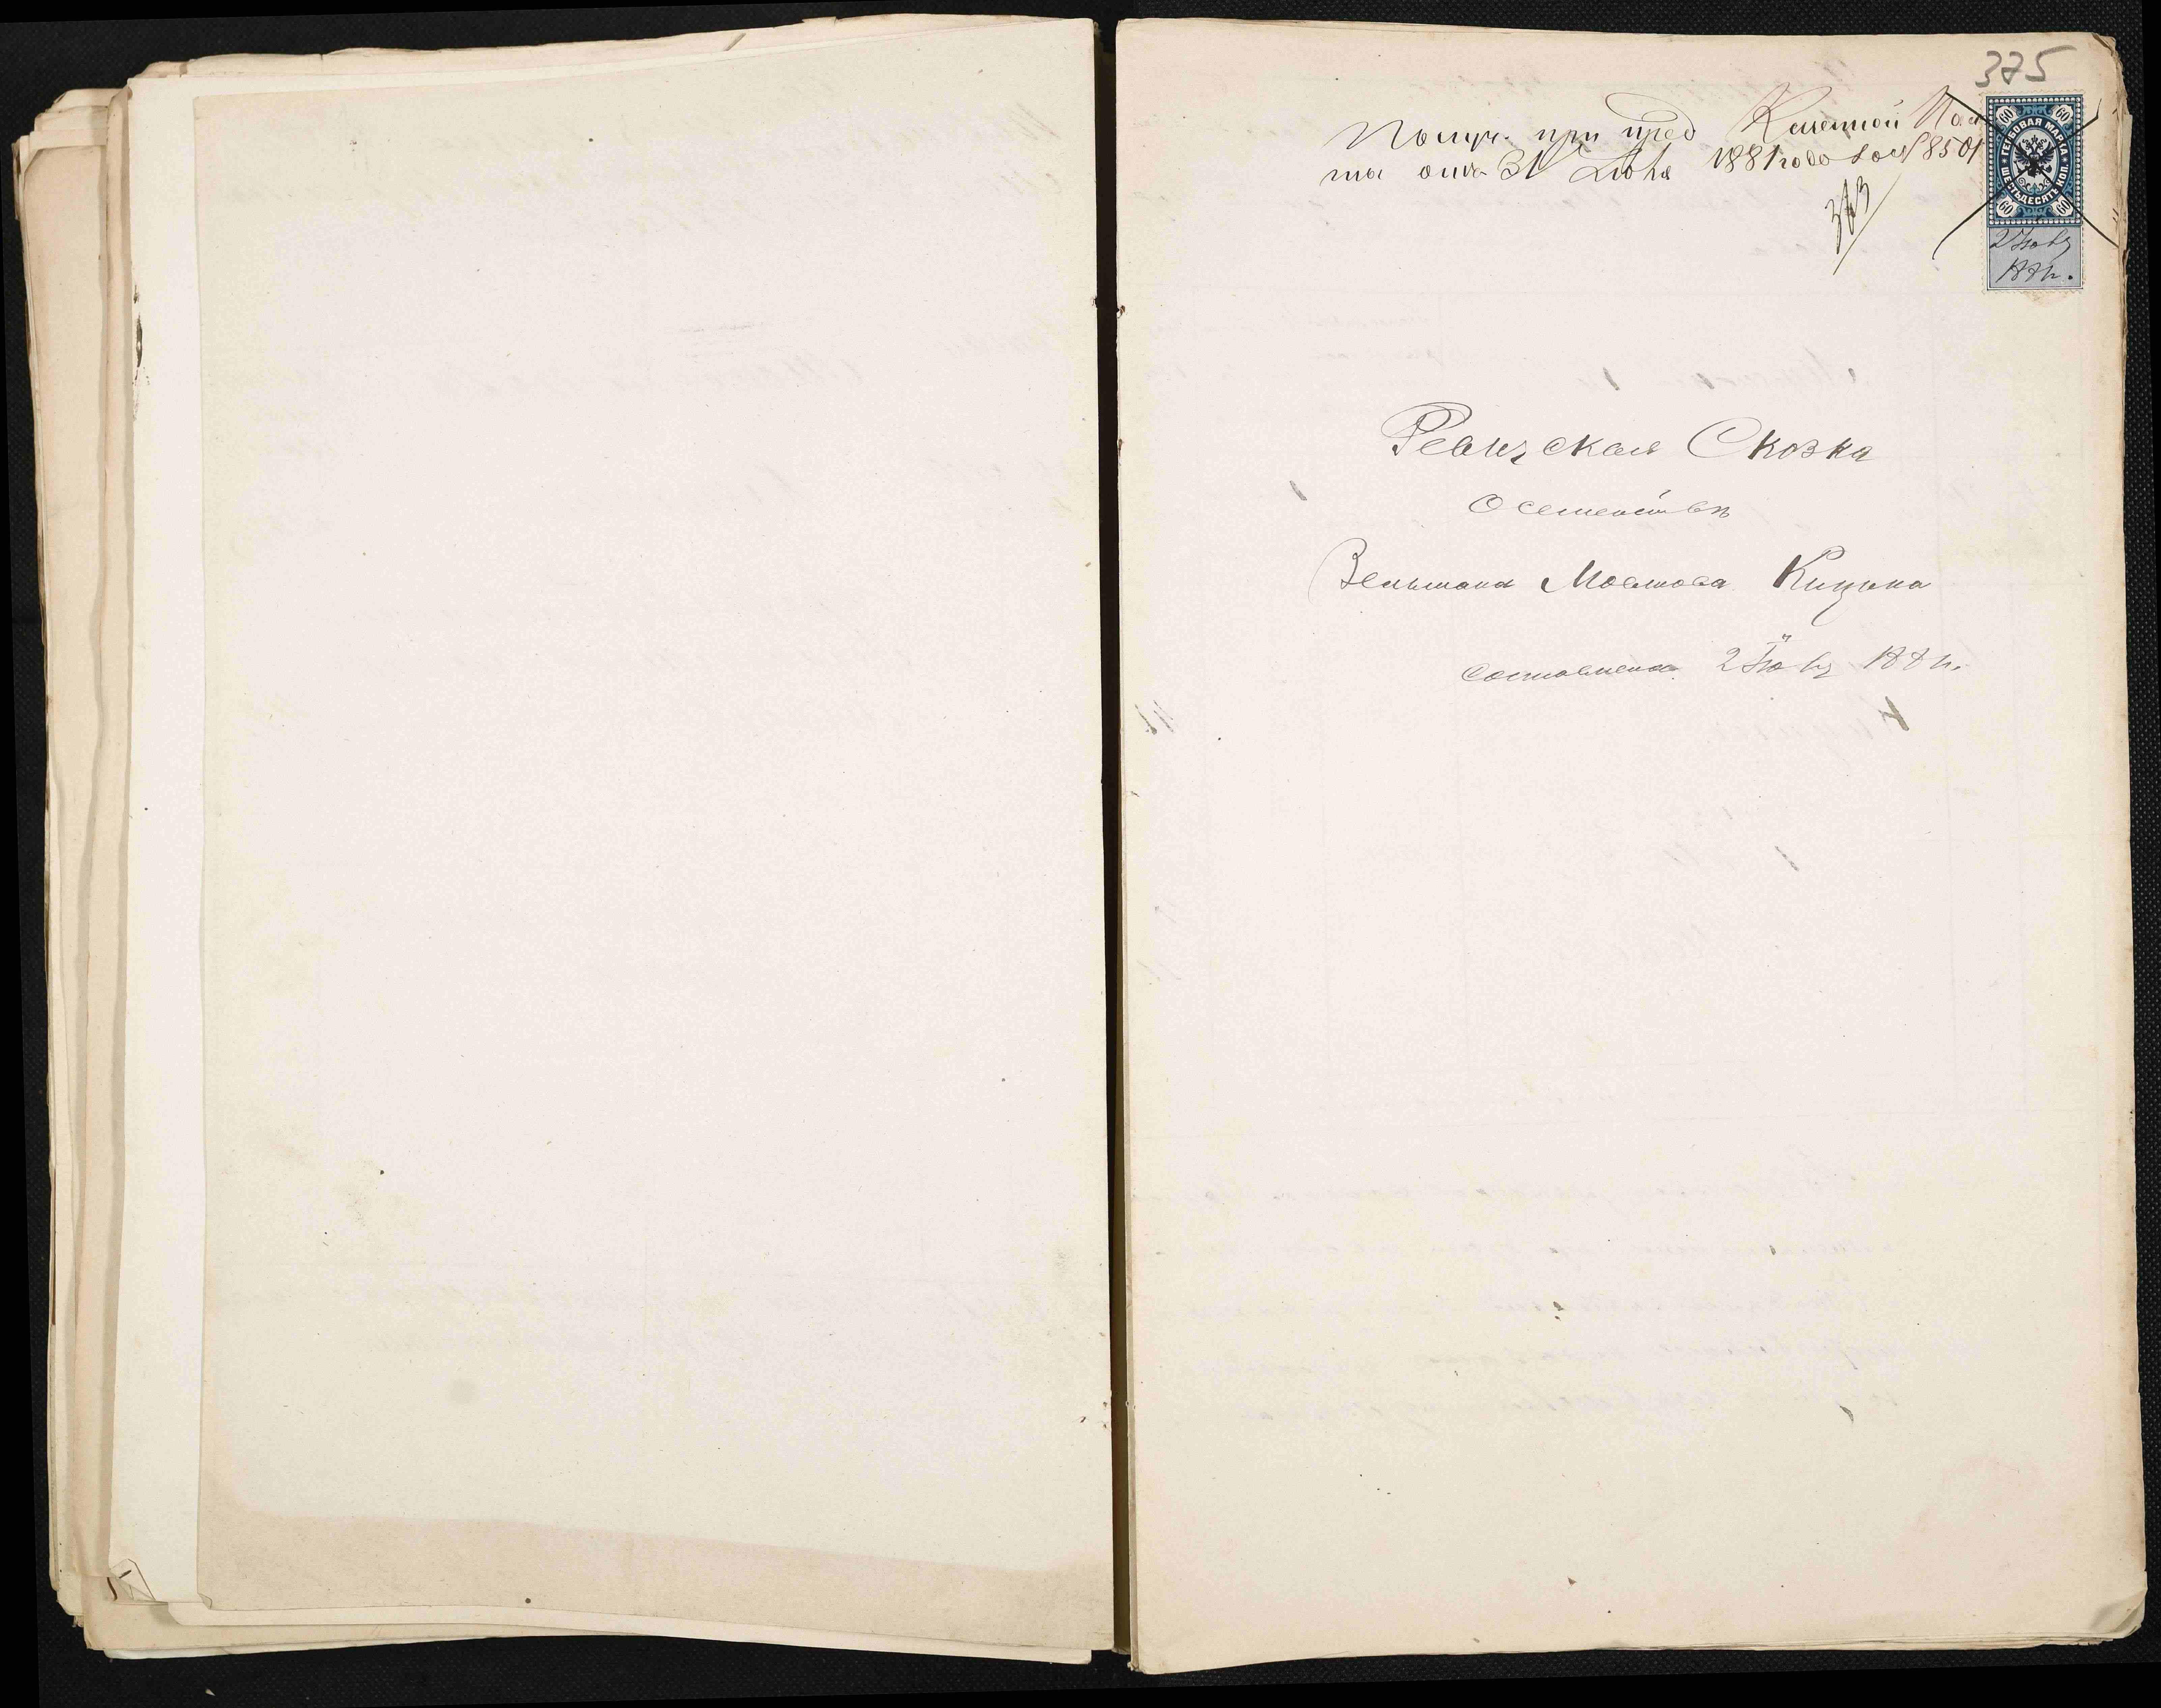 375
Получ. при пред Казенной Пала
ты отъ 31 Июля 1881 года за № 8501
373
60 60
ГЕРБОВАЯ МАРКА
ШЕСТЬДЕСЯТЪ КОП.
60 60
2 Іюля
1881 г.
Ревизская Сказка
О семействѣ
Зельмана Мовшова Кицына
составлена 2 Іюля 1881 г.